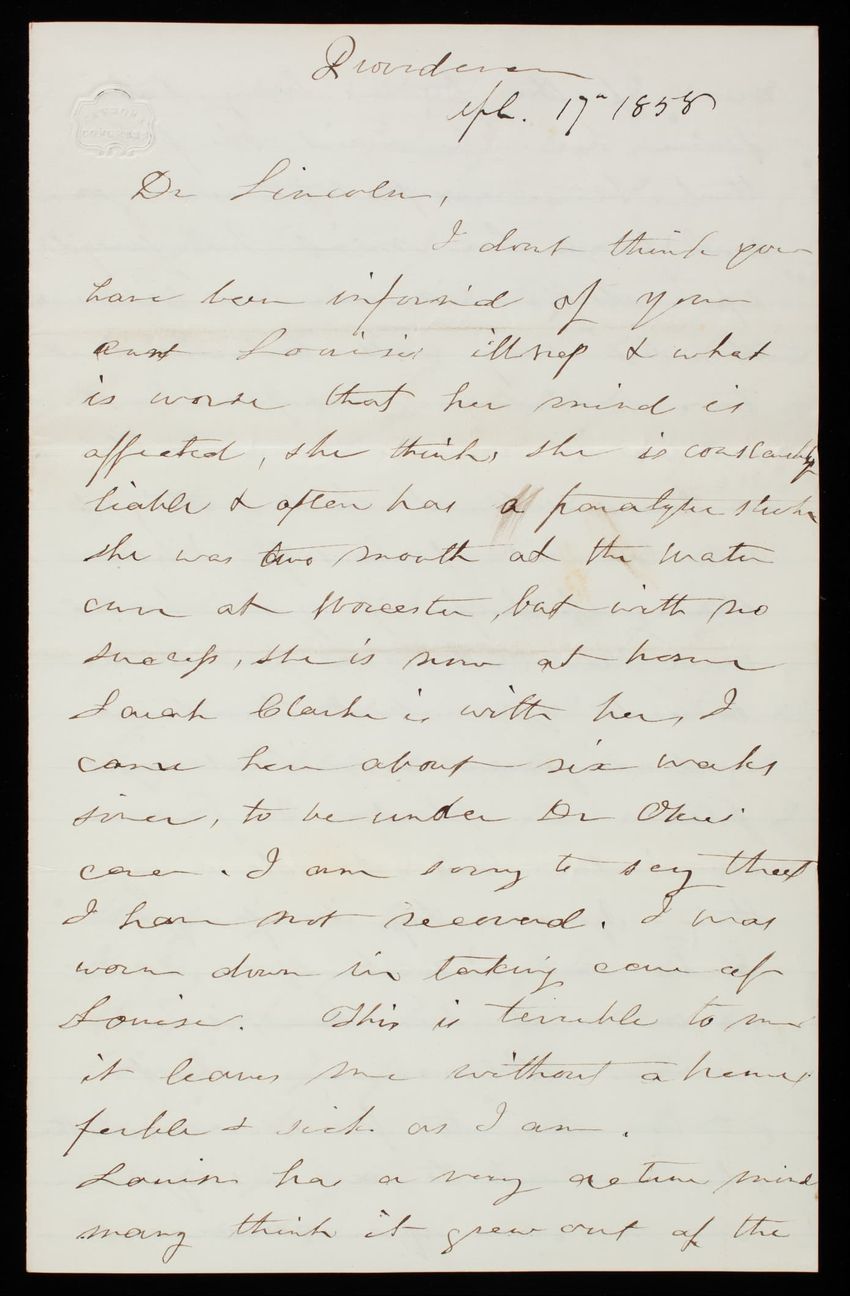 Providence
Apl. 17th 1858
Dr Lincoln,
I dont think you
have been inform'd of your
aunt Louisa's illness & what
is worse that her mind is
affected, she thinks she is constantly
liable & often has a paralytic stroke
she was two month at the water
cure at Worcester, but with no
success, she is now at home
Sarah Clarke is with her, I
came here about six weeks
since, to be under Dr Okie's
care. I am sorry to say that
I have not recovered. I was
worn down in taking care of
Louisa. This is terrible to me
it leaves me without a home,
feeble & sick as I am.
Louisa has a very active mind
many think it grew out of the